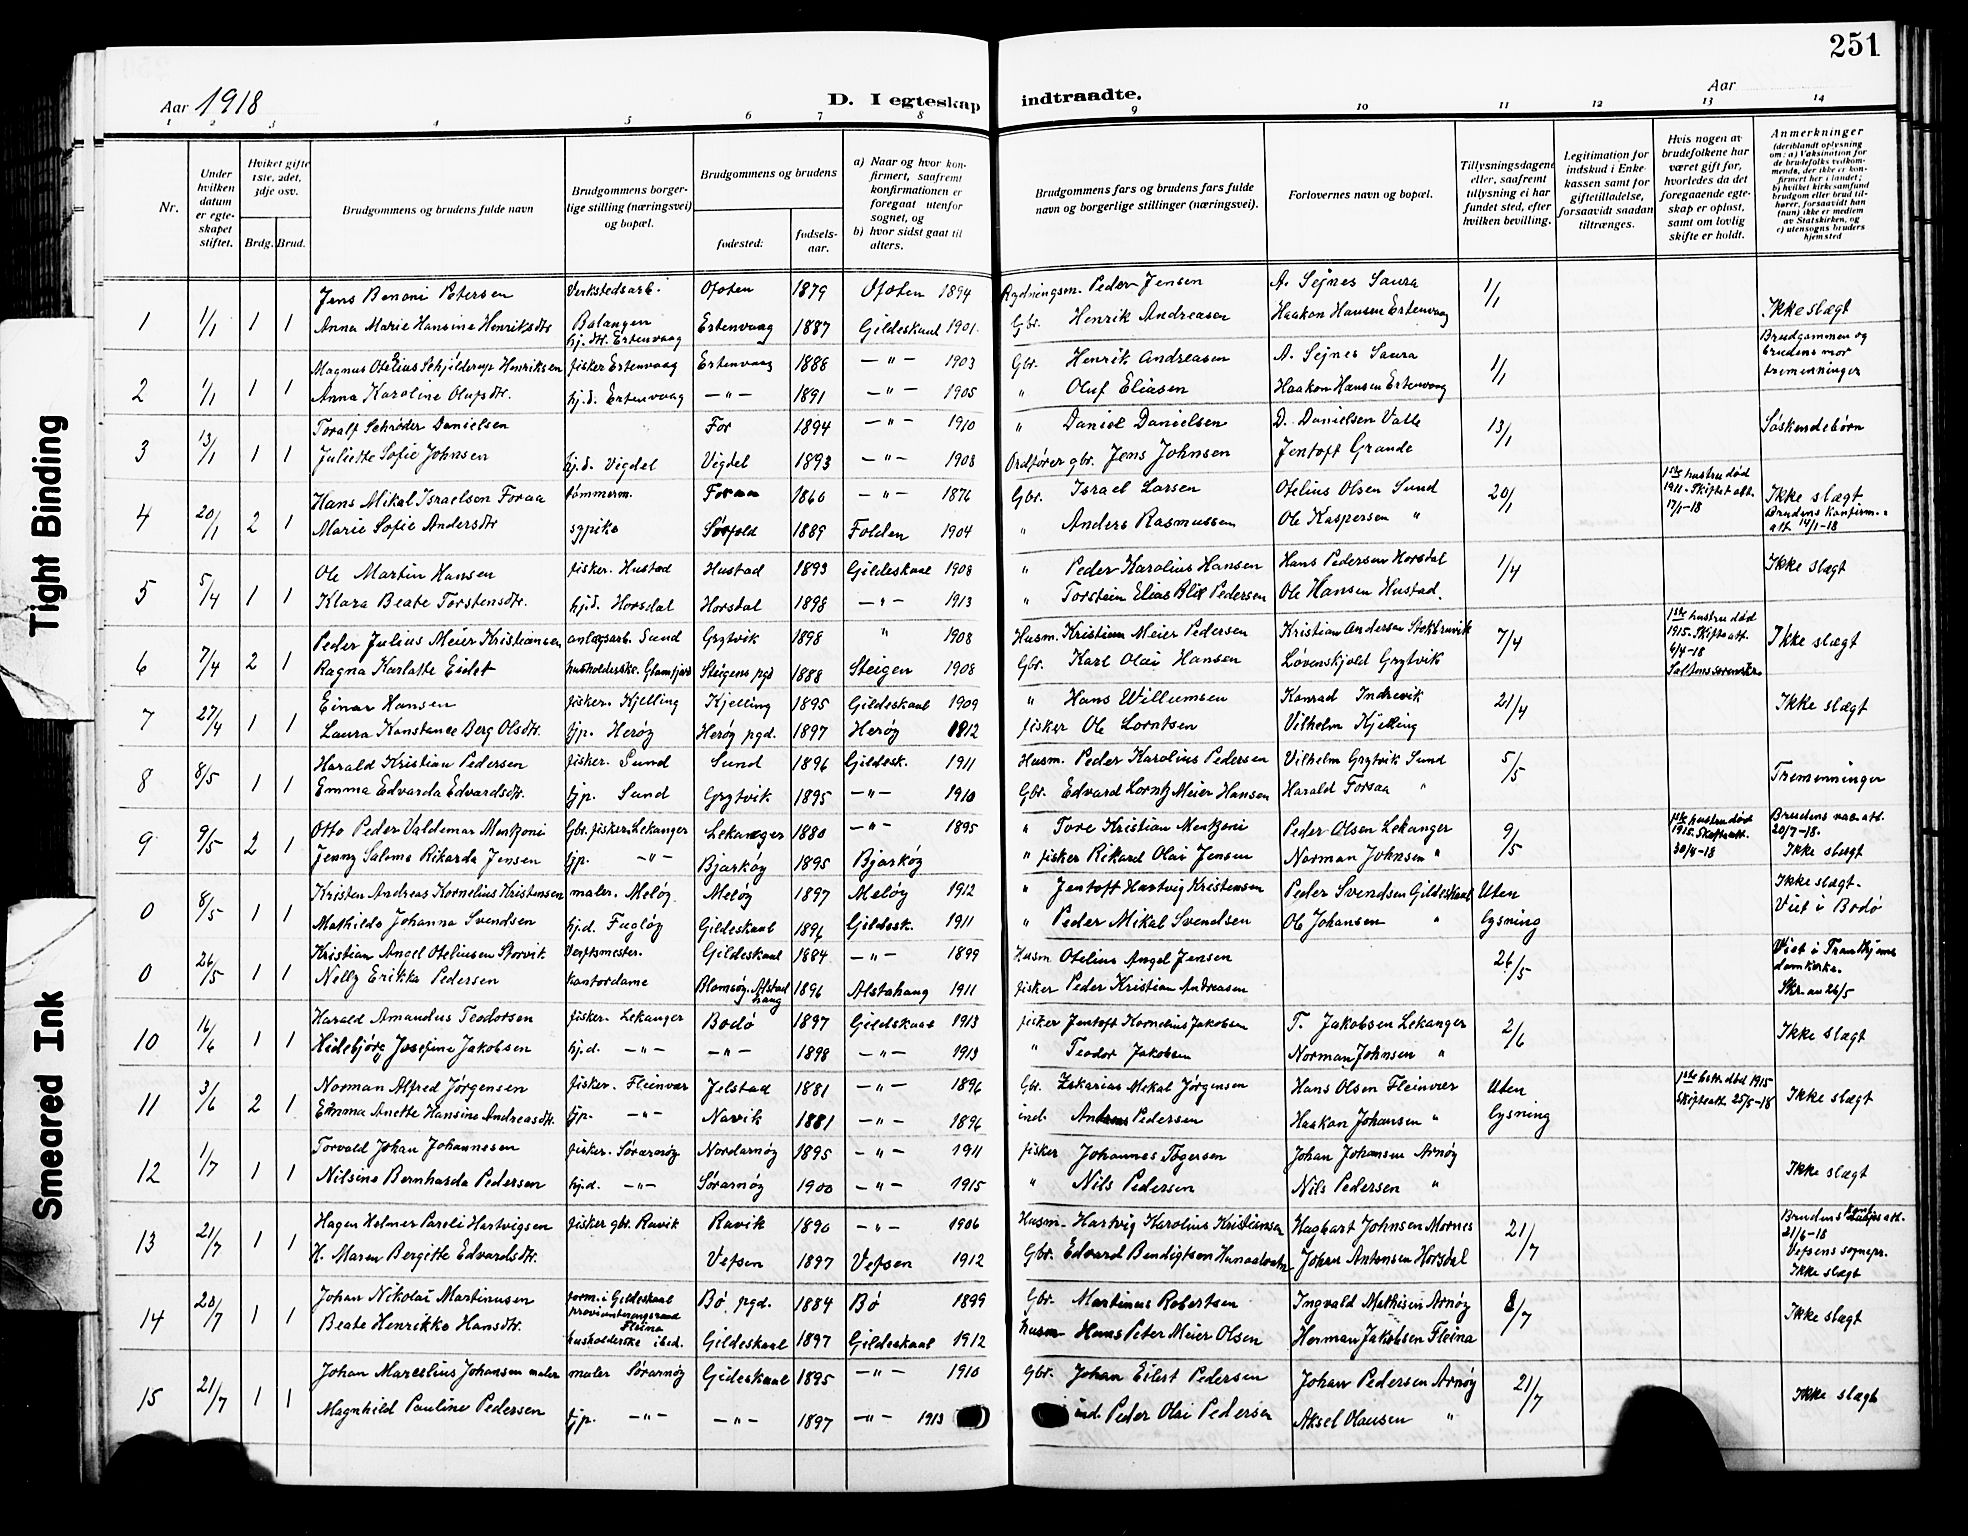 251
Aar 1918
D. I egteskap indtraadte.
Aar
1 2 3 4 5 6 7 8 9 10 11 12 13 14
Nr.
Under hvilken datum er egteskapet stiftet.
Hvilket gifte 1ste, 2det, 3dje osv.
Brdg. Brud.
Brudgommens og brudens fulde navn
Brudgommens borgerlige stilling (næringsvei) og bopæl.
Brudgommens og brudens
fødested:
fødselsaar.
a) Naar og hvor konfirmert, saafremt konfirmationen er foregaat utenfor sognet, og
b) hvor sidst gaat til alters.
Brudgommens fars og brudens fars fulde navn og borgerlige stillinger (næringsvei).
Forlovernes navn og bopæl.
Tillysningsdagene eller, saafremt tillysning ei har fundet sted, efter hvilken bevilling.
Legitimation for indskud i Enkekassen samt for giftetilladelse, forsaavidt saadan tiltrænges.
Hvis nogen av brudefolkene har været gift før, hvorledes da det foregaaende egteskap er opløst, samt om lovlig skifte er holdt.
Anmerkninger (deriblandt oplysning om: a) Vaksination for de brudefolks vedkommende, der ikke er konfirmert her i landet; b) hvilket kirkesamfund brudgom eller brud tilhører, forsaavidt han (hun) ikke er medlem av Statskirken, og c) utensogns bruders hjemsted
Jens Benoni Petersen Verkstedsarb. Ofoten 1879 Ofoten 1894 Peder Jensen A. Sejnes Saura 1/1
1 1/1 1 1 Anna Marie Hansine Henriksdtr Balangen hj. dt. Ertenvaag Ertenvaag 1887 Gildeskaal 1901. Gbr. Henrik Andreasen Haakon Hansen Ertenvaag Ikke slægt
Magnus Otelius Schjelderup Henriksen fisker Ertenvaag Ertenvaag 1888 — " — 1903 Gbr. Henrik Andreasen A. Sejnes Saura 1/1 Brudgommen og brudens mor tremenninger
2 1/1 1 1 Anna Karoline Olufsdtr. hj.d. Ertenvaag — " — 1891 — " — 1905 " Oluf Eliasen Haakon Hansen Ertenvaag
Toralf Schrøder Danielsen For 1894 — " — 1910 " Daniel Danielsen D. Danielsen Valle 13/1 Søskendebørn
3 13/1 1 1 Juliette Sofie Johnsen hj.d. Vigdel Vigdel 1893 — " — 1908 Ordfører gbr. Jens Johnsen Jentoft Grande
Hans Mikal Israelsen Foraa tømmerm. Foraa 1860 — " — 1876 Gbr. Israel Larsen Otelius Olsen Sund 20/1 1ste hustru død 1911. Skiftet att. 17/1-18 Ikke slægt
4 20/1 2 1 Marie Sofie Andersdtr sypike Sørfold 1889 Folden 1904 " Anders Rasmussen Ole Kaspersen " Brudens konfirm. att. 14/1-18
Ole Martin Hansen fisker. Hustad Hustad 1893 Gildeskaal 1908 " Peder Karolius Hansen Hans Pedersen Horsdal 1/4 Ikke slægt
5 5/4 1 1 Klara Beate Torstensdtr. hj.d. Horsdal Horsdal 1898 — " — 1913 " Torstein Elias Blix Pedersen Ole Hansen Hustad.
Peder Julius Meier Kristiansen anlægsarb. Sund Grytvik 1898 " 1908 Husm. Kristian Meier Pedersen Kristian Andersen 7/4 1ste hustru død 1915. Skifteatt. 6/4-18 Ikke slægt
6 7/4 2 1 Ragna Karlotte Eidet husholderske. Glomfjord Steigens pgd 1888 Steigen 1908 Gbr. Karl Olai Hansen Løvenskjold Grytvik
Einar Hansen fisker. Kjelling Kjelling 1895 Gildeskaal 1909 " Hans Willumsen Konrad Indrevik 21/4 Ikke slægt
7 27/4 1 1 Laura Konstance Berg Olsdtr. tjp. Herøy Herøy pgd. 1897 Herøy 1912 fisker Ole Lorntsen Vilhelm Kjelling
Harald Kristian Pedersen fisker. Sund Sund 1896 Gildesk. 1911 Husm. Peder Karolius Pedersen Vilhelm Grytvik Sund 5/5 Tremenninger
8 8/5 1 1 Emma Edvarda Edvardsdtr. tjp. Sund Grytvik 1895 — " — 1910 Gbr. Edvard Lorntz Meier Hansen Harald Foraa "
Otto Peder Valdemar Mentzoni Gbr. fisker. Lekanger Lekanger 1880 — " — 1895 " Tore Kristian Mentzoni Peder Olsen Lekanger 9/5 1ste hustru død 1915. Skifteatt. 30/4-18 Brudens vac. att. 20/7-18.
9 9/5 2 1 Jenny Salome Rikarda Jensen tjp. — " — Bjarkøy 1895 Bjarkøy " fisker Rikard Olai Jensen Norman Johnsen " Ikke slægt
Kristen Andreas Kornelius Kristensen maler. Meløy Meløy 1897 Meløy 1912 " Jentoft Hartvig Kristensen Peder Svendsen Gildeskaal Uten lysning Ikke slægt.
0 8/5 1 1 Mathilde Johanna Svendsen hj.d. Fugløy Gildeskaal 1896 Gildesk. 1911 " Peder Mikal Svendsen Ole Johansen " Viet i Bodø
Kristian Angel Oteliussen Storvik Verftsmester. Gildeskaal 1884 — " — 1899 Husm Otelius Angel Jensen 26/5 Viet i Trondhjems domkirke.
0 26/5 1 1 Nelly Erikka Pedersen kontordame Blomsøy. Alstadhaug 1896 Alstahaug 1911 fisker Peder Kristian Andreasen Skr. av 26/5
Harald Amandus Teodorsen fisker. Lekanger Bodø 1897 Gildeskaal 1913 fisker Jentoft Kornelius Jakobsen T. Jakobsen Lekanger 2/6 Ikke slægt
10 16/6 1 1 Hildebjørg Josefine Jakobsen hj.d. — " — — " — 1898 — " — 1913 " Teodor Jakobsen Norman Johnsen "
Norman Alfred Jørgensen fisker. Fleinvær Jelstad 1881 — " — 1896 Gbr. Zakarias Mekal Jørgensen Hans Olsen Fleinvær Uten lysning 1ste hstr. død 1915 Skifteatt. 25/5-18 Ikke slægt
11 3/6 2 1 Emma Anette Hansine Andreasdtr. tjp. — " — Narvik 1881 — " — 1896 ind. Andreas Pedersen Haakon Johansen "
Torvald Johan Johannesen fisker. Sørarnøy Nordarnøy 1895 — " — 1911 fisker Johannes Tøgersen Johan Johansen Arnøy
12 1/7 1 1 Nilsine Bernharda Pedersen hj.d. — " — Sørarnøy 1900 — " — 1915 " Nils Pedersen Nils Pedersen " Ikke slægt
Hagen Helmer Pareli Hartvigsen fisker gbr. Ravik Ravik 1890 — " — 1906 Husm. Hartvig Karolius Kristiansen Hagbart Johnsen Mornes 21/7 Brudens att. 21/6-18
13 21/7 1 1 H. Maren Bergitte Edvardsdtr. Vefsen 1897 Vefsen 1912 Gbr. Edvard Bendigtsen Johan Antonsen Horsdal Vefsens sognepr. Ikke slægt
Johan Nikolai Martinusen form. i Gildeskaal provianteringsraad Fleina Bø pgd. 1884 Bø 1899 Gbr. Martinus Robertsen Ingvald Mathisen Arnøy 8/7 Ikke slægt
14 28/7 1 1 Beate Henrikke Hansdtr. husholderske ibid. Gildeskaal 1897 Gildeskaal 1912 husm Hans Peter Meier Olsen Herman Jakobsen Fleina
Johan Marselius Johansen maler maler Sørarnøy Gideskaal 1895 — " — 1910 Gbr. Johan Eilert Pedersen Johan Pedersen Arnøy 21/7 Ikke slægt
15 21/7 1 1 Magnhild Pauline Pedersen tjp. — " — — " — 1897 — " — 1913 ind. Peder Olai Pedersen Aksel Olausen "
Tight Binding
Smeared Ink